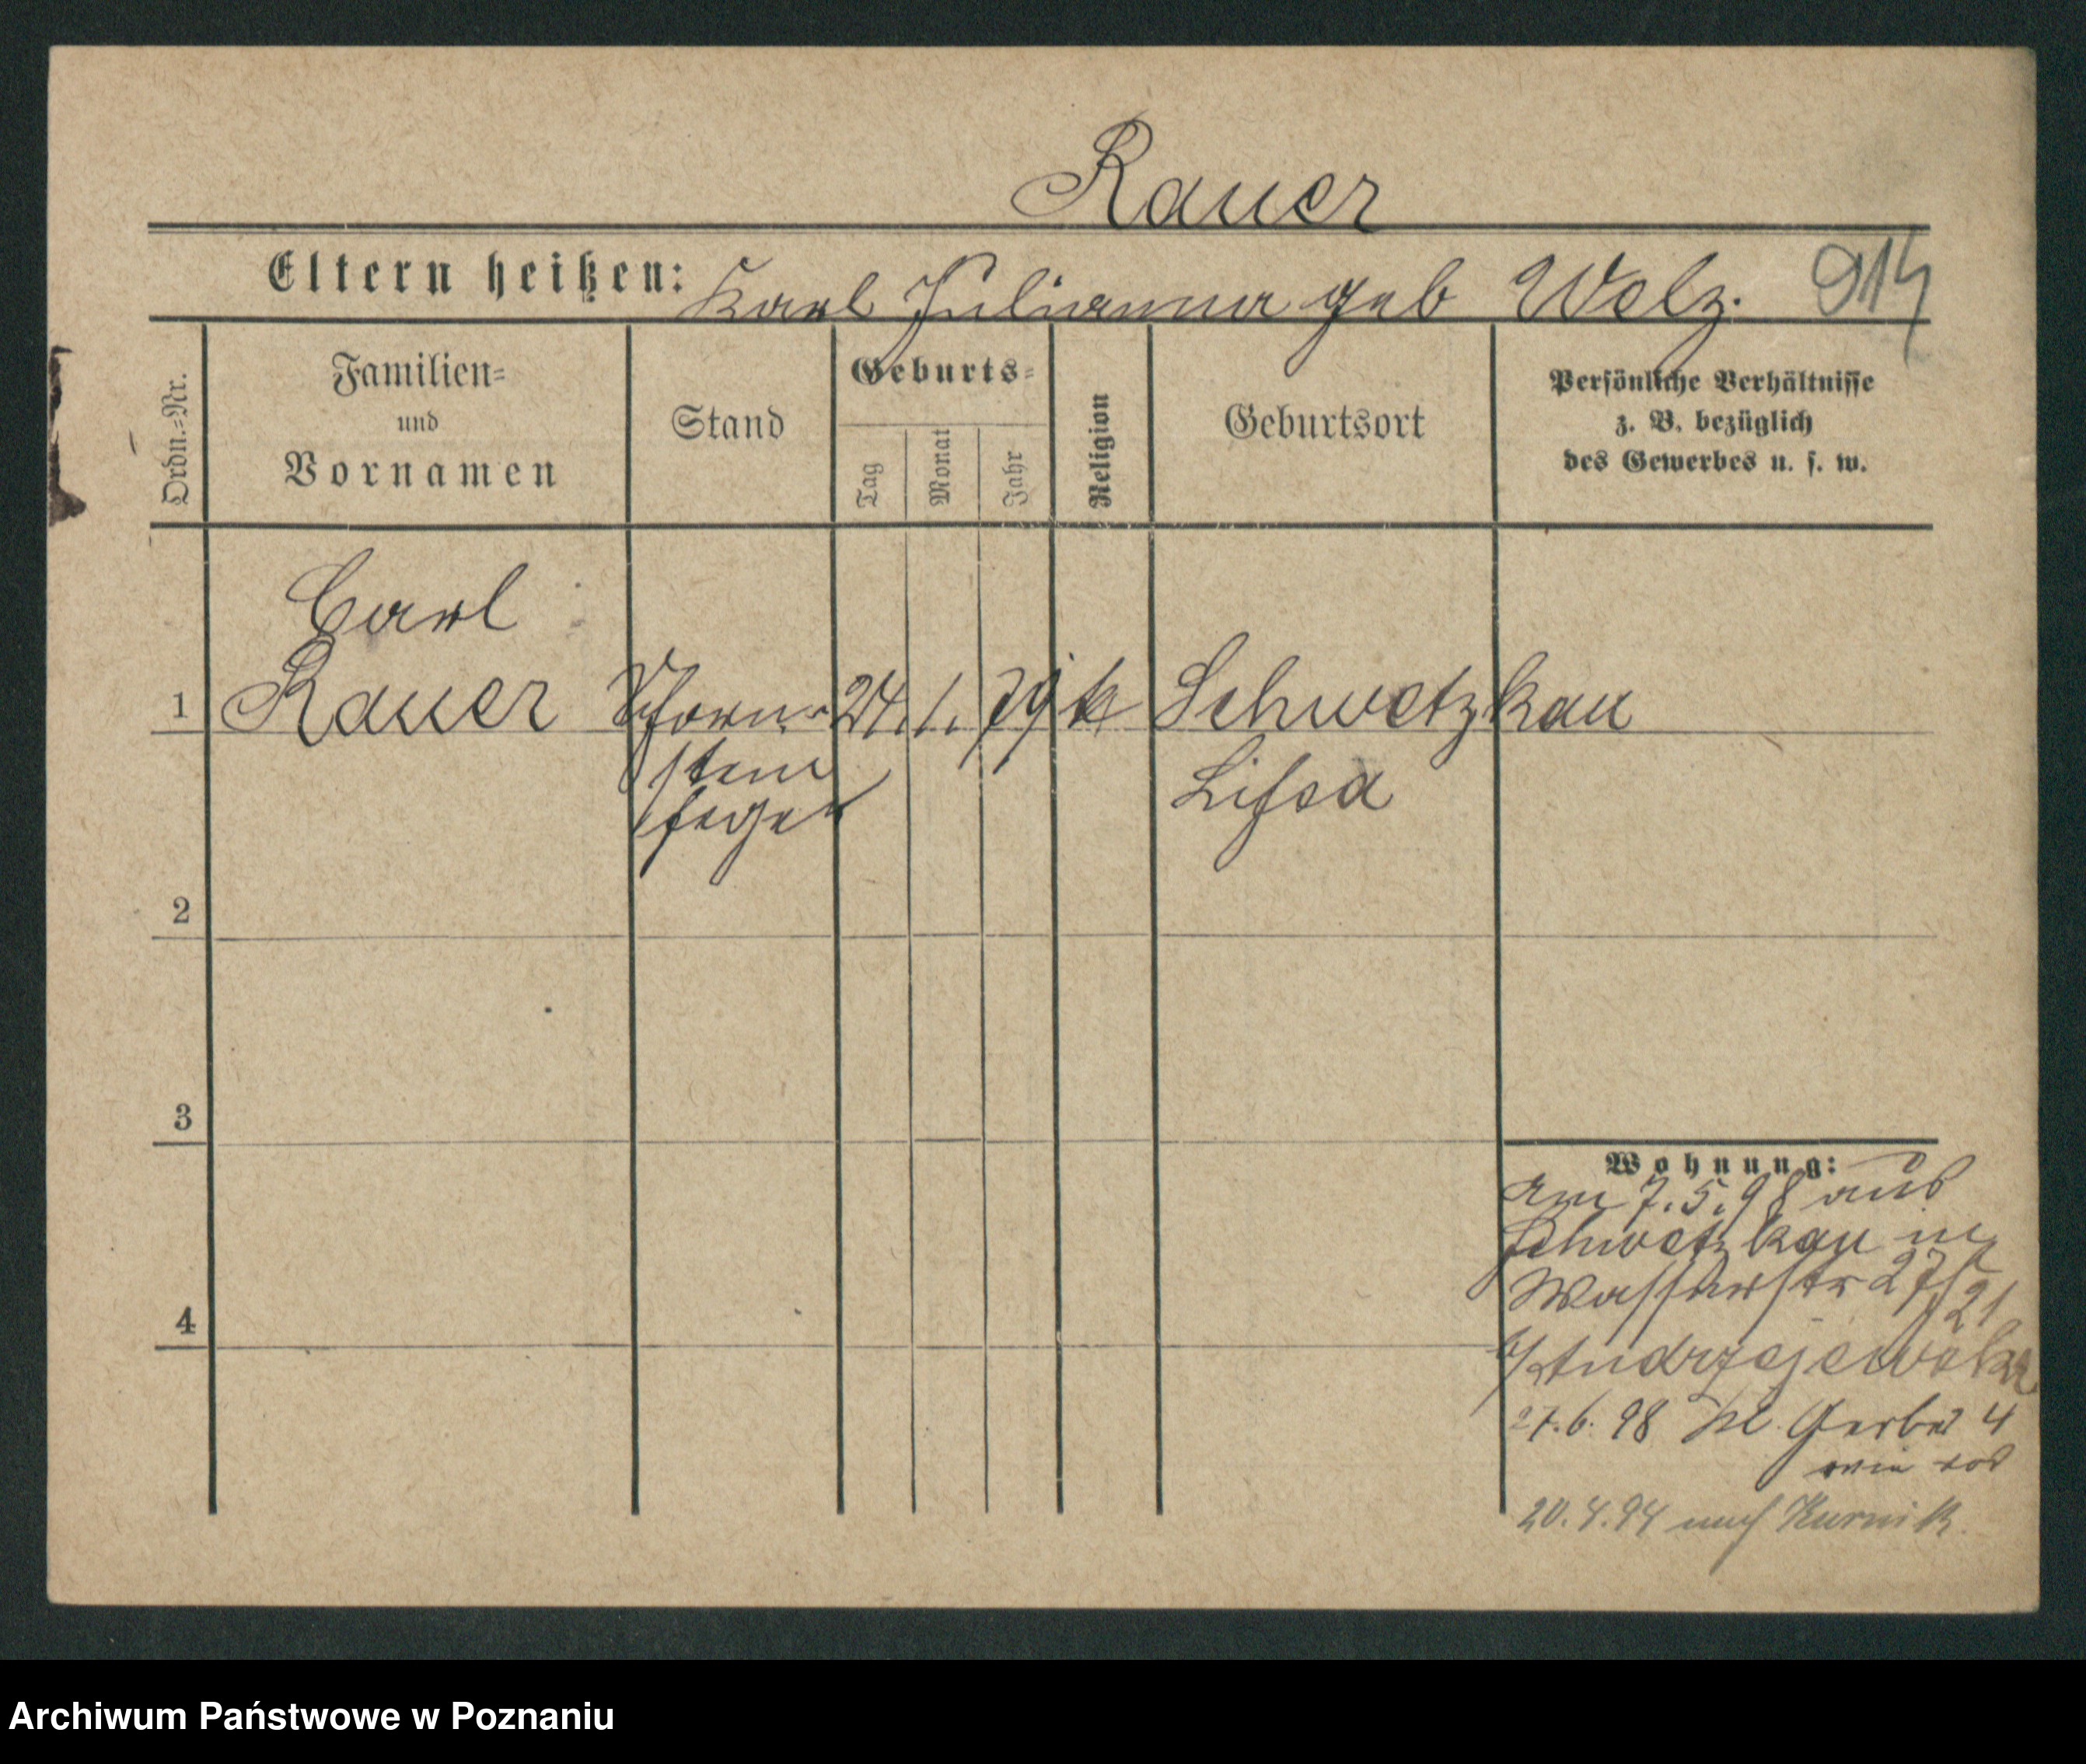 Rauer
Eltern heißen: Karl Julianna geb Welz. 914
Ordn.-Nr.
Familien-
und
Vornamen
Stand
Geburts-
Tag
Monat
Jahr
Religion
Geburtsort
Persönliche Verhältnisse
z. B. bezüglich
des Gewerbes u. s. w.
Carl
1 Rauer Schorn- 24. 1. 79 k Schwetzkau
stein Lissa
feger
2
3
4
Wohnung:
am 7. 5. 98 aus
Schwetzkau in
Wasserstr 27/ 21
b/ Andrzejewski
27. 6. 98 Kl. Gerber 4
wie vor
20. 4. 94 nach Kurnik.
Archiwum Państwowe w Poznaniu